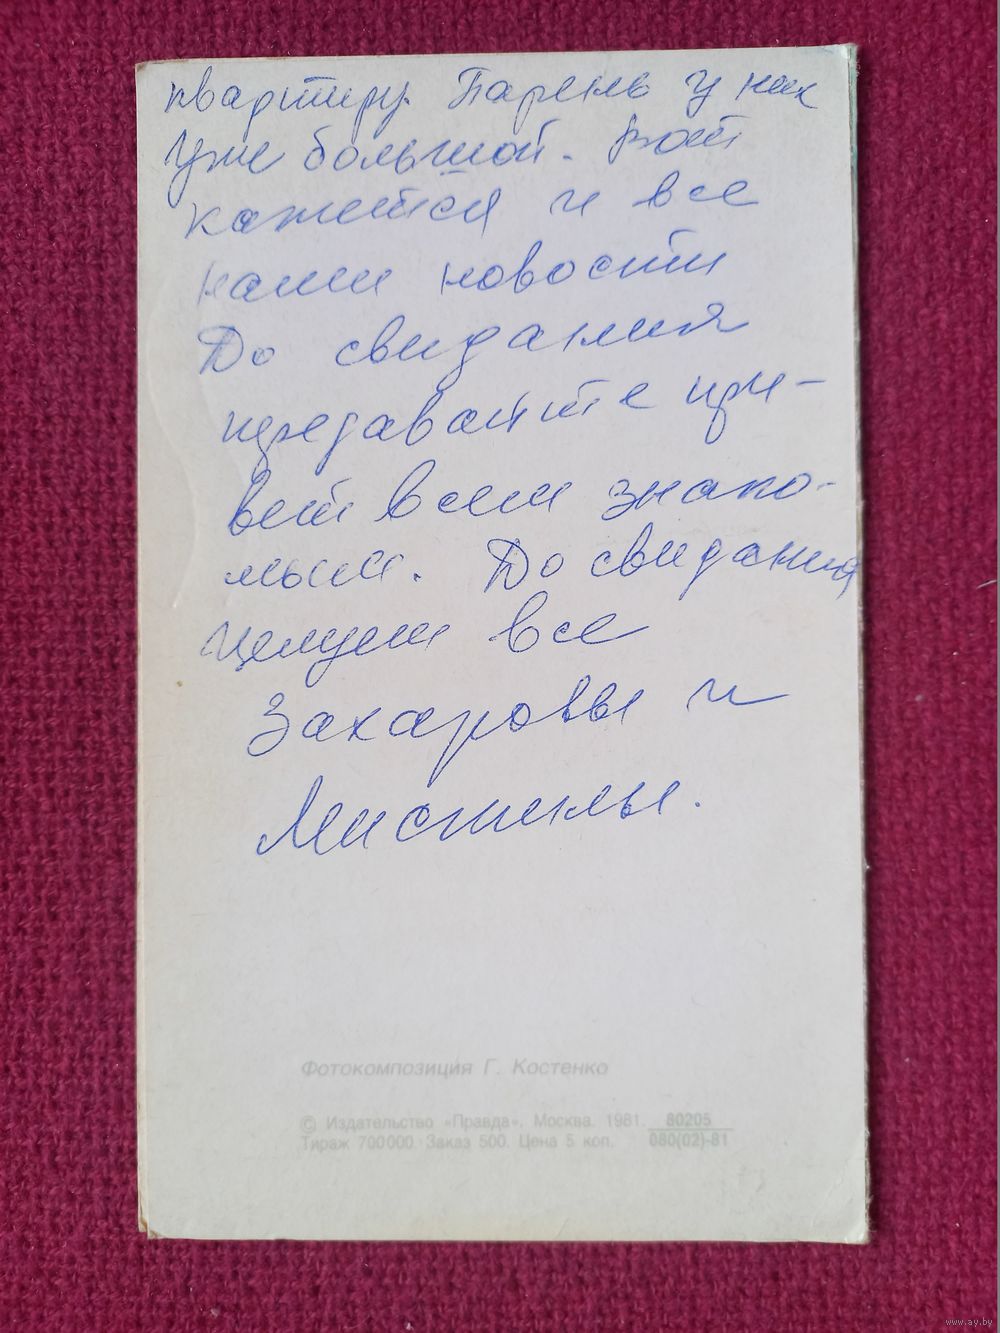 квартиру. Парень у них
уже большой. Вот
кажется и все
наши новости
До свидания
передавайте при-
вет всем знако-
мым. До свидания
целуем все
Захаровы и
Фотокомпозиция Г. Костенко
© Издательство «Правда». Москва. 1981. 80205
Тираж 700000. Заказ 500. Цена 5 коп. 080(02)-81
www.ay.by